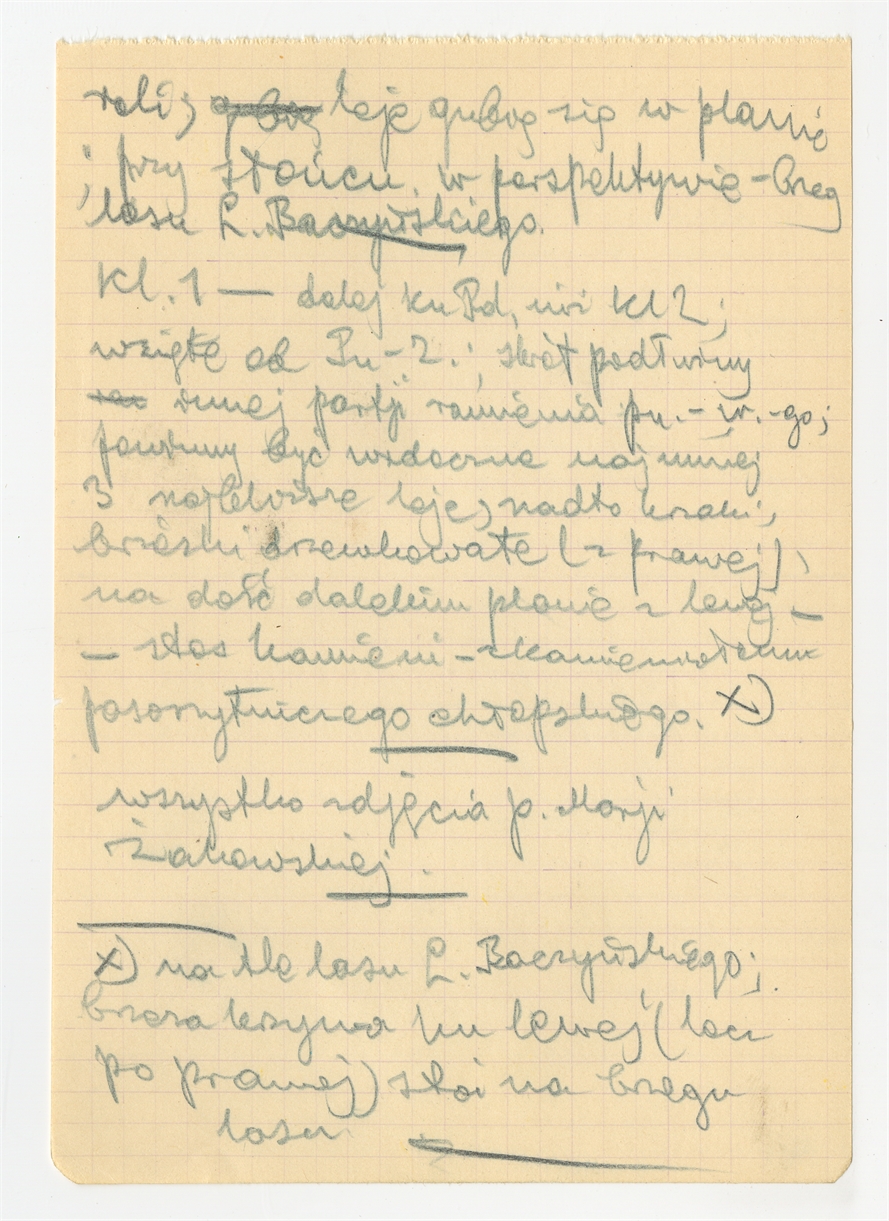 leje gubią się w planie
i przy słońcu, w perspektywie – brzeg
lasu L. Baczyńskiego.
Kl. 1 — dalej ku Pd, niż Kl 2;
wzięte od Pn – Z.; skrót podłużny
innej partji ramienia pn. – w. – go;
powinny być widoczne najmniej
3 najbliższe leje, nadto krzaki,
brzózki drzewkowate (z prawej),
na dość dalekim planie z lewej –
– stos kamieni – z kamieniołomu
pasorzytniczego chłopskiego. X)
wszystko zdjęcia p. Marji
Żakowskiej.
X) na tle lasu L. Baczyńskiego;
brzoza krzywa ku lewej (lecz
po prawej) stoi na brzegu
lasu.